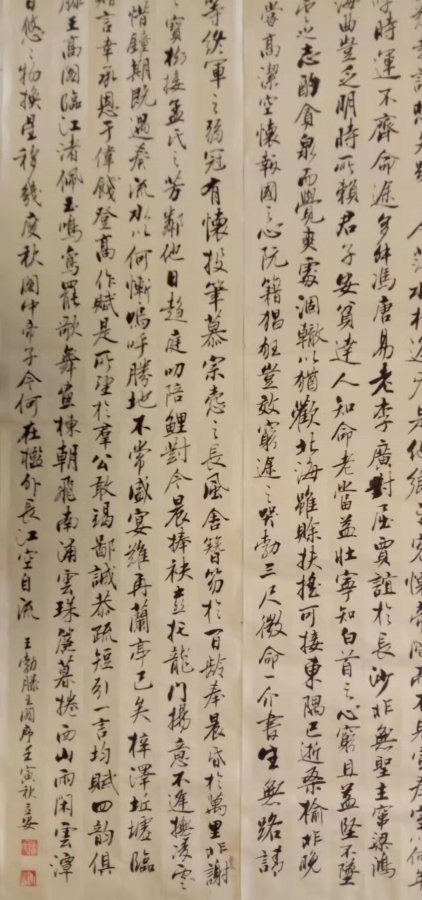 人萍水相逢盡是他鄉之客懷帝閽而不見奉宣室以何年
呼時運不齊命途多舛馮唐易老李廣難封屈賈誼於長沙非無聖主竄梁鴻
海曲豈乏明時所賴君子安貧達人知命老當益壯寧知白首之心窮且益堅不墜
雲之志酌貪泉而覺爽處涸轍以猶歡北海雖賒扶搖可接東隅已逝桑榆非晚
嘗高潔空懷報國之心阮籍猖狂豈效窮途之哭勃三尺微命一介書生無路請
等終軍之弱冠有懷投筆慕宗愨之長風舍簪笏於百齡奉晨昏於萬里非謝
之寶樹接孟氏之芳鄰他日趨庭叨陪鯉對今晨捧袂喜托龍門楊意不逢撫凌雲
惜鐘期既遇奏流水以何慚嗚呼勝地不常盛宴難再蘭亭已矣梓澤坵墟臨
贈言幸承恩于偉餞登高作賦是所望於羣公敢竭鄙誠恭疏短引一言均賦四韻俱
滕王高閣臨江渚佩玉鳴鸞罷歌舞畫棟朝飛南浦雲珠簾暮捲西山雨閑雲潭
日悠悠物換星移幾度秋閣中帝子今何在檻外長江空自流
王勃滕王閣序壬寅秋